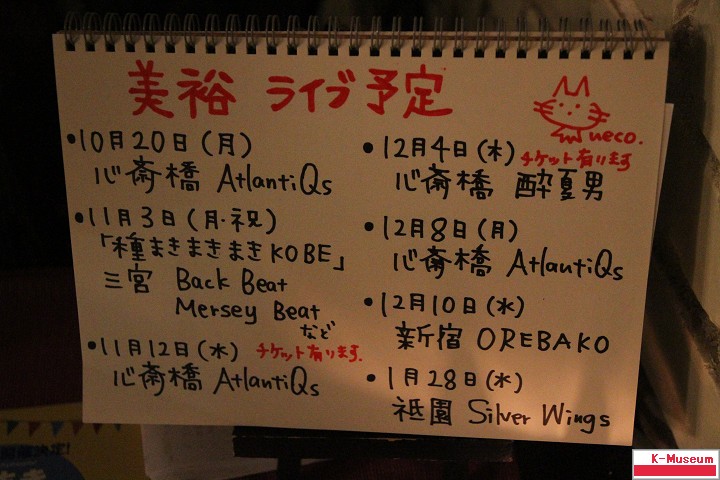 美裕 ライブ予定
ueco.
•10月20日(月)
心斎橋 AtlantiQs
•11月3日(月・祝)
「種まきまきまきKOBE」
三宮 Back Beat
Mersey Beat
など
•11月12日(水) チケット有ります.
心斎橋 AtlantiQs
•12月4日(木) チケット有ります
心斎橋 酔夏男
•12月8日(月)
心斎橋 AtlantiQs
•12月10日(水)
新宿 OREBAKO
•1月28日(水)
祗園 Silver Wings
K-Museum